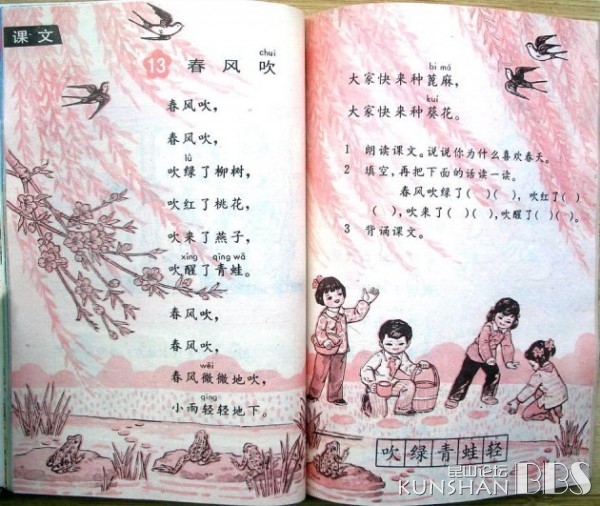 课文
chuī
13 春风吹
春风吹，
春风吹，
lǜ
吹绿了柳树，
吹红了桃花，
吹来了燕子，
xǐng qīng wā
吹醒了青蛙。
春风吹，
春风吹，
wēi
春风微微地吹，
qīng
小雨轻轻地下。
bì má
大家快来种蓖麻，
kuí
大家快来种葵花。
1 朗读课文。说说你为什么喜欢春天。
2 填空，再把下面的话读一读。
春风吹绿了( )( )，吹红了( )
( )，吹来了( )( )，吹醒了( )( )。
3 背诵课文。
吹绿青蛙轻
昆山论坛
KUNSHAN BBS